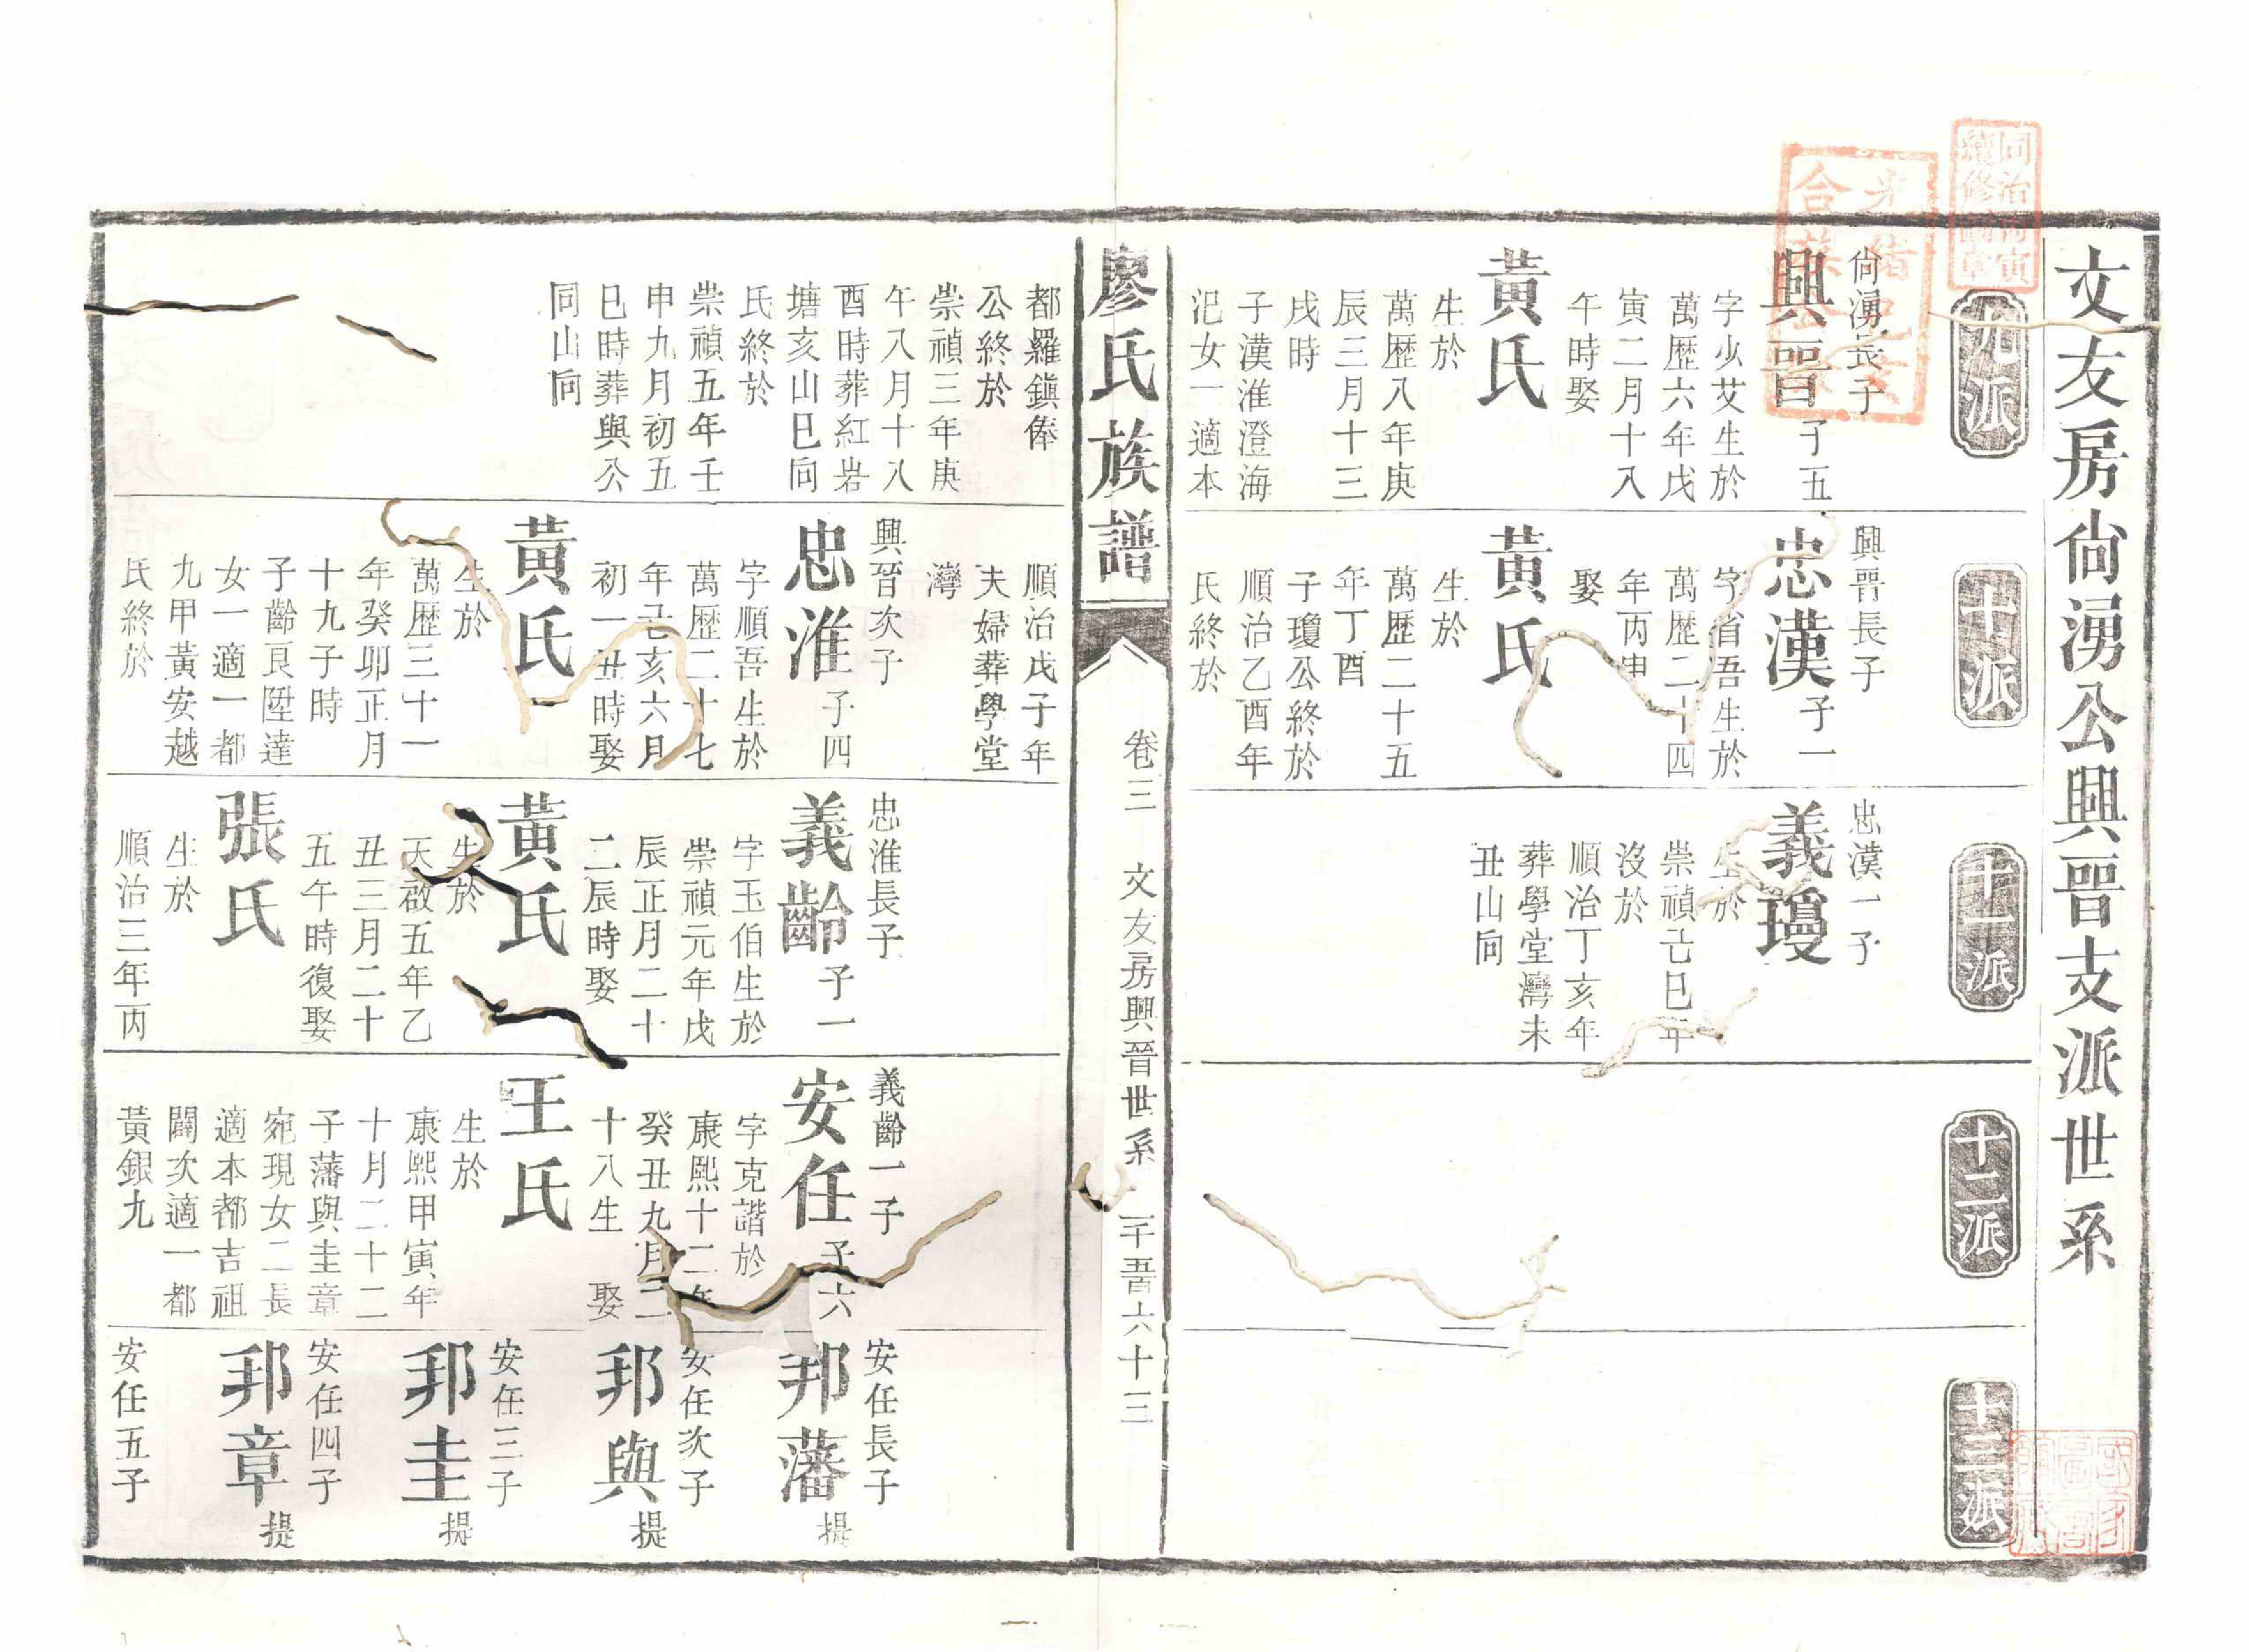 文友房尙湧公興晉支派世系
九派
尙湧長子
興晉
子五
字少艾生於
萬歷六年戊
寅二月十八
午時娶
黃氏
生於
萬歷八年庚
辰三月十三
戌時
子漢淮澄海
汜女一適本
都羅鎭俸
公終於
崇禎三年庚
午八月十八
酉時葬紅岩
塘亥山巳向
氏終於
崇禎五年壬
申九月初五
巳時葬與公
同山向
十派
興晉長子
忠漢
子一
字省吾生於
萬歷二十四
年丙申
娶
黃氏
生於
萬歷二十五
年丁酉
子瓊公終於
順治乙酉年
氏終於
順治戊子年
夫婦葬學堂
灣
興晉次子
忠淮
子四
字順吾生於
萬歷二十七
年己亥六月
初一丑時娶
黃氏
生於
萬歷三十一
年癸卯正月
十九子時
子齡良陞達
女一適一都
九甲黃安越
氏終於
十一派
忠漢一子
義瓊
生於
崇禎己巳年
沒於
順治丁亥年
葬學堂灣未
丑山向
忠淮長子
義齡
子一
字玉伯生於
崇禎元年戊
辰正月二十
二辰時娶
黃氏
生於
天啟五年乙
丑三月二十
五午時復娶
張氏
生於
順治三年丙
十二派
義齡一子
安任
子六
字克諧於
康熙十二年
癸丑九月二
十八生 娶
王氏
生於
康熙甲寅年
十月二十二
子藩與圭章
宛現女二長
適本都吉祖
闊次適一都
黃銀九
十三派
安任長子
邦藩
提
安任次子
邦與
提
安任三子
邦圭
提
安任四子
邦章
提
安任五子
廖氏族譜
卷三
文友房興晉世系
二千吾六十三
同治丙寅
續修圖章
光緒
合